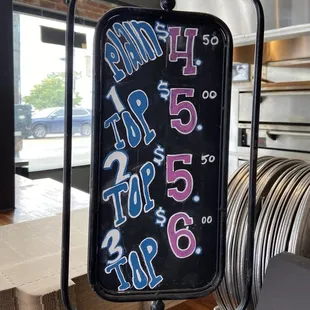 Plain $4.50
1 TOP $5.00
2 TOP $5.50
3 TOP $6.00